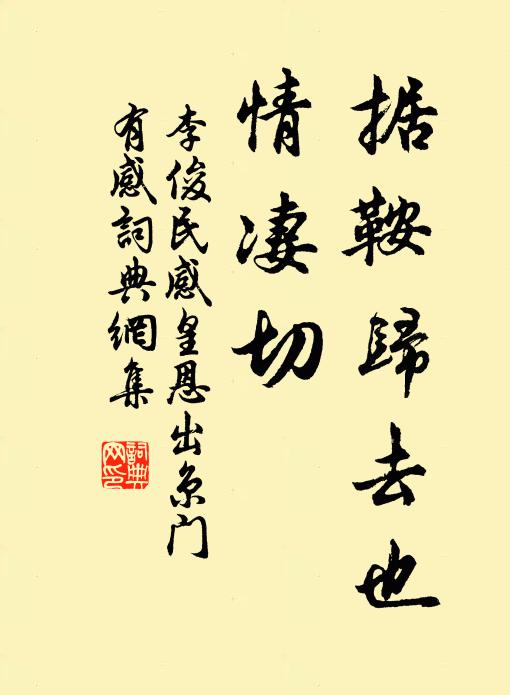 据鞍歸去也
情凄切
李俊民感皇恩出京门
有感詞典網集
詞典
网印